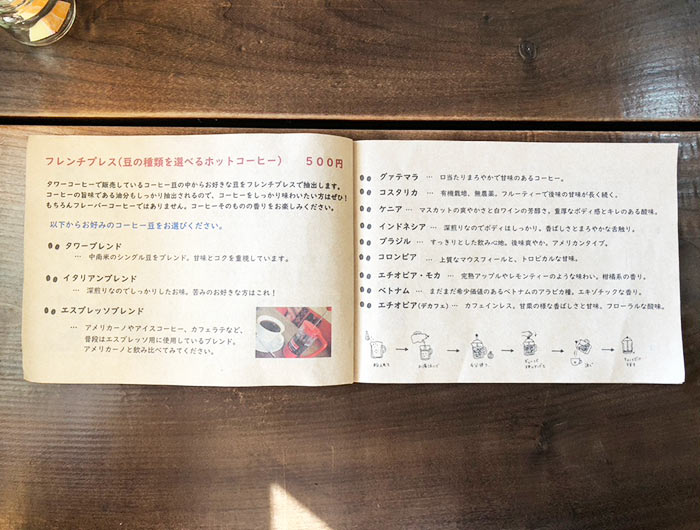 フレンチプレス(豆の種類を選べるホットコーヒー) 500円
タワーコーヒーで販売しているコーヒー豆の中からお好きな豆をフレンチプレスで抽出します。
コーヒーの旨味である油分もしっかり抽出されるので、コーヒーをしっかり味わいたい方はぜひ!
もちろんフレーバーコーヒーではありません。コーヒーそのものの香りをお楽しみください。
以下からお好みのコーヒー豆をお選びください。
タワーブレンド
… 中南米のシングル豆をブレンド。甘味とコクを重視しています。
イタリアンブレンド
… 深煎りなのでしっかりしたお味。苦みのお好きな方はこれ!
エスプレッソブレンド
… アメリカーノやアイスコーヒー、カフェラテなど、
普段はエスプレッソ用に使用しているブレンド。
アメリカーノと飲み比べてみてください。
グァテマラ … 口当たりまろやかで甘味のあるコーヒー。
コスタリカ … 有機栽培、無農薬。フルーティーで後味の甘味が長く続く。
ケニア … マスカットの爽やかさと白ワインの芳醇さ。重厚なボディ感とキレのある酸味。
インドネシア … 深煎りなのでボディはしっかり。香ばしさとまろやかな舌触り。
ブラジル … すっきりとした飲み心地。後味爽やか。アメリカンタイプ。
コロンビア … 上質なマウスフィールと、トロピカルな甘味。
エチオピア・モカ … 完熟アップルやレモンティーのような味わい。柑橘系の香り。
ベトナム … まだまだ希少価値のあるベトナムのアラビカ種。エキゾチックな香り。
エチオピア(デカフェ) … カフェインレス。甘栗の様な香ばしさと甘味。フローラルな酸味。